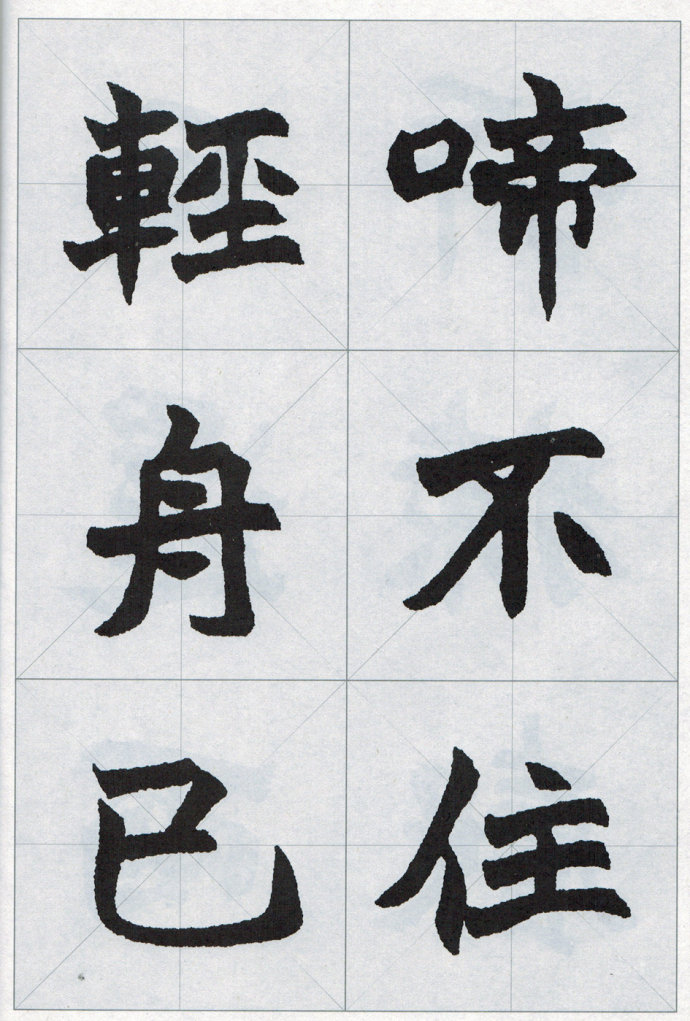 啼不住
輕舟已